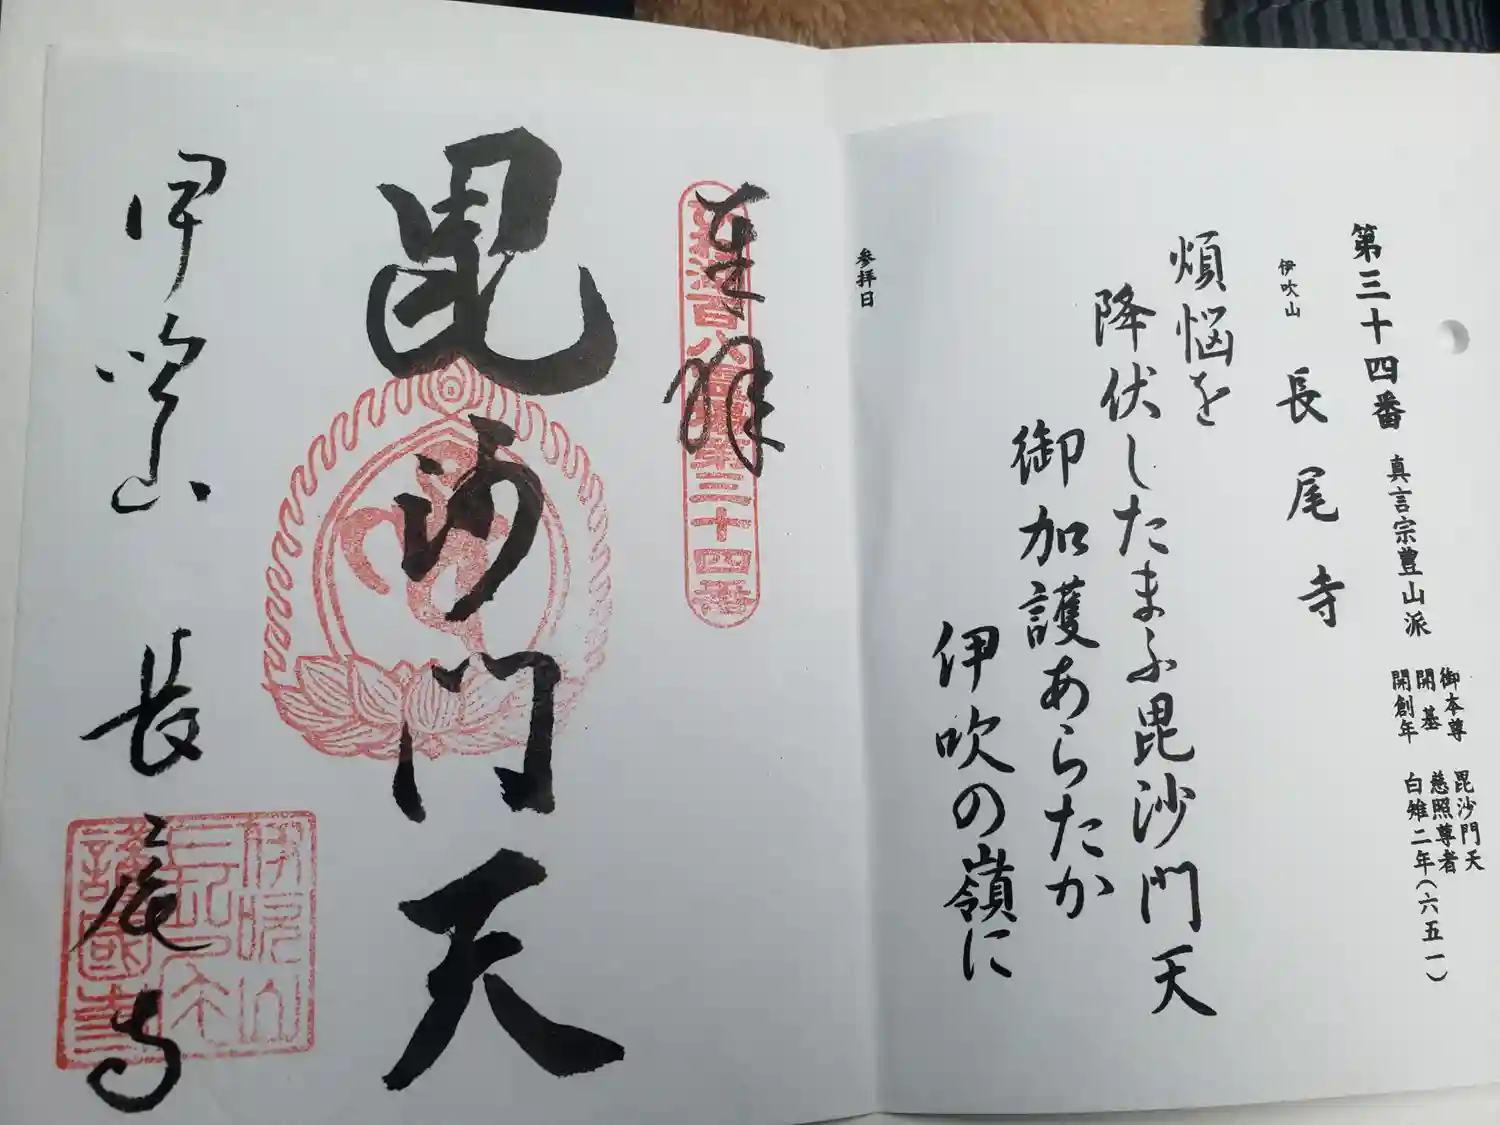 第三十四番 真言宗豊山派
御本尊 毘沙門天
開基 慈照尊者
開創年 白雉二年(六五一)
伊吹山 長尾寺
煩悩を
降伏したまふ毘沙門天
御加護あらたか
伊吹の嶺に
参拝日
奉拝
百八霊場第三十四番
毘沙門天
伊吹山 長尾寺
護國寺